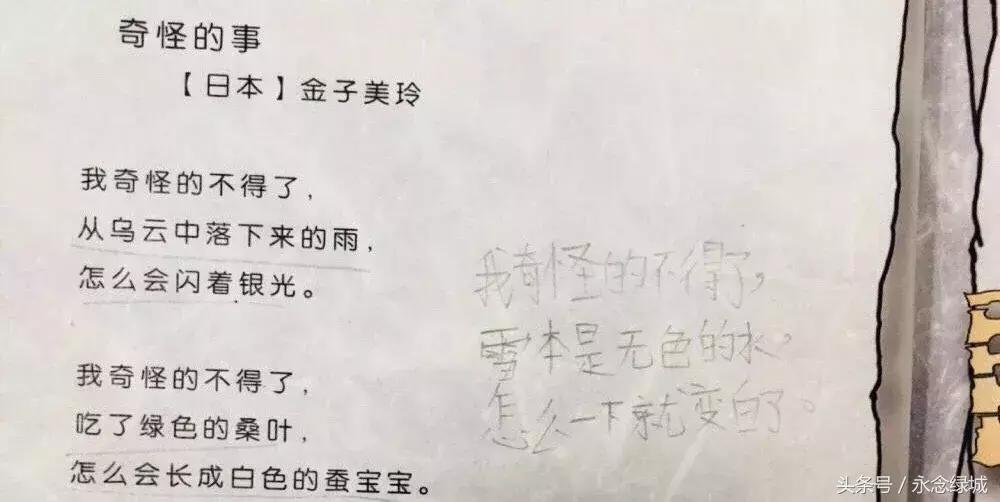 奇怪的事
【日本】金子美玲
我奇怪的不得了，
从乌云中落下来的雨，
怎么会闪着银光。
我奇怪的不得了，
吃了绿色的桑叶，
怎么会长成白色的蚕宝宝。
我奇怪的不得了，
雪本是无色的水，
怎么一下就变白了。
头条号 / 永念绿城